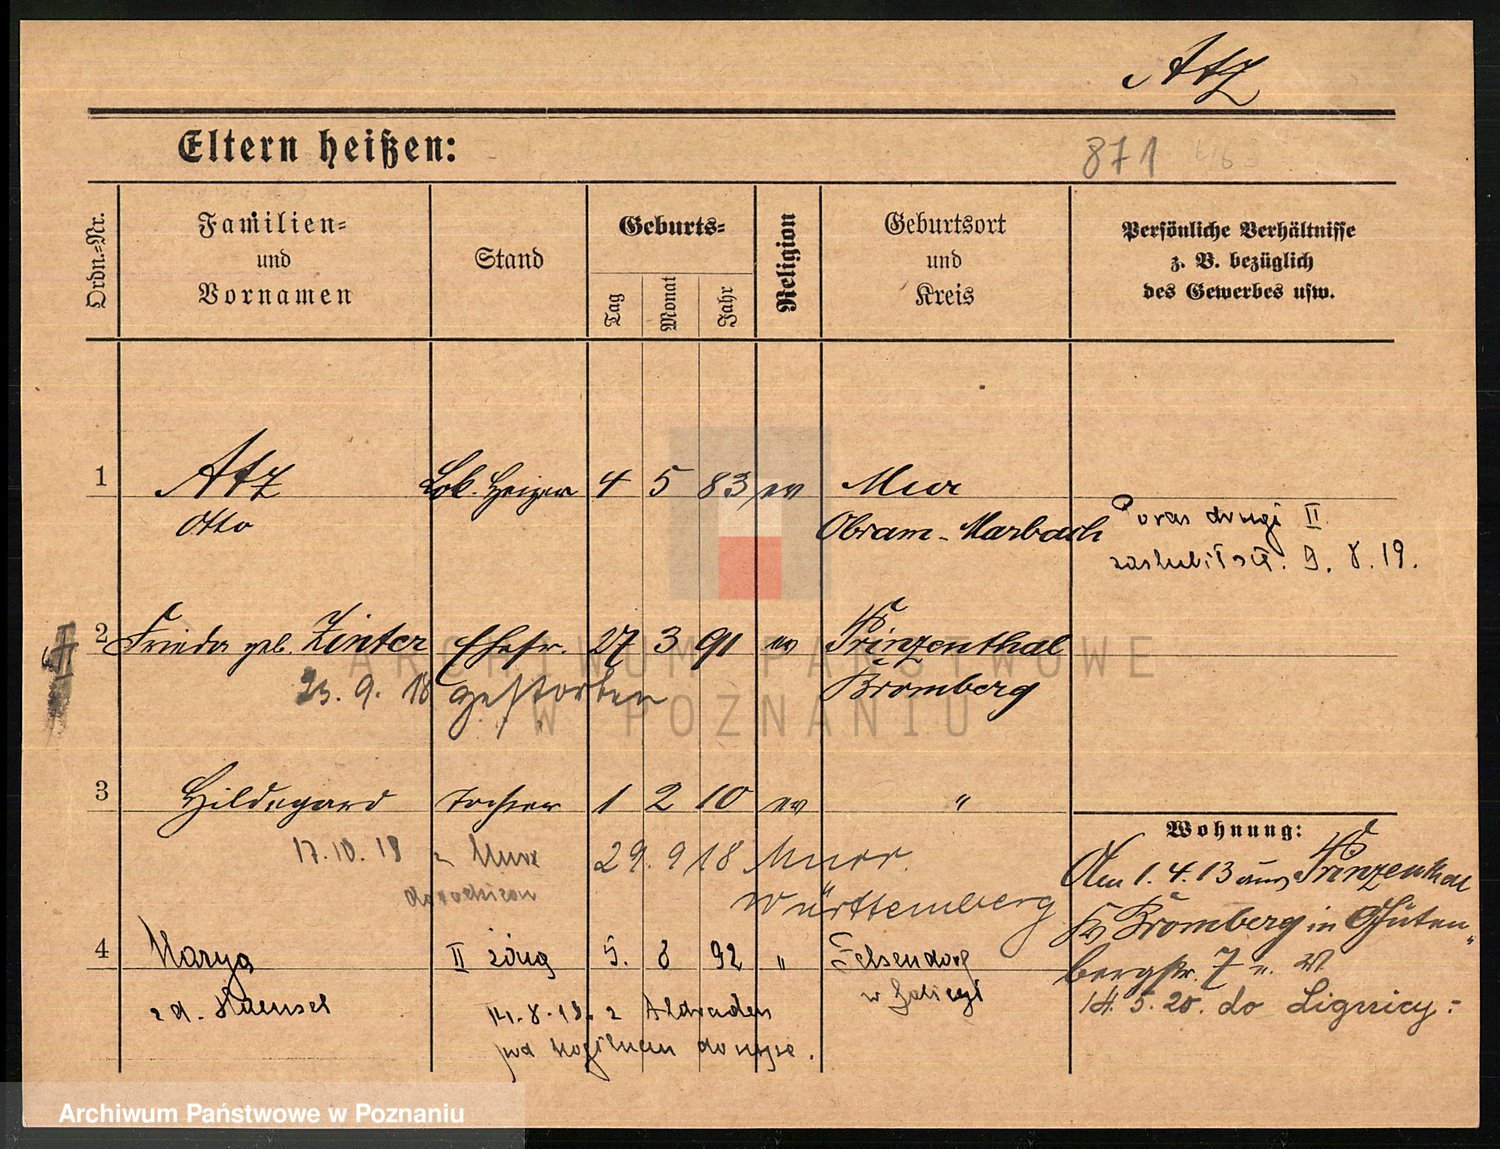 Atz
Eltern heißen:
871
Ordn.-Nr.
Familien-
und
Vornamen
Stand
Geburts-
Tag
Monat
Jahr
Religion
Geburtsort
und
Kreis
Persönliche Verhältnisse
z. B. bezüglich
des Gewerbes usw.
1 Atz Lok. Heizer 4 5 83 ev Murr
Otto
Marbach
Poraz drugi II
9. 8. 19.
2 Frieda geb. Zinter Ehefr. 27 3 91 ev Prinzenthal
23. 9. 18 gestorben
Bromberg
3 Hildegard Tochter 1 2 10 ev "
17.10.18 z Murr 29. 9 18 Murr
Württemberg
Wohnung:
Am 1.4.13 aus Prinzenthal
Bromberg in Guten-
bergstr. 7
14. 5. 20. do Lignicy
4 Marya II żóną 5. 8 92 " Felsendorf
w Galicyi
z d. Haensel
ARCHIWUM PAŃSTWOWE
W POZNANIU
Archiwum Państwowe w Poznaniu